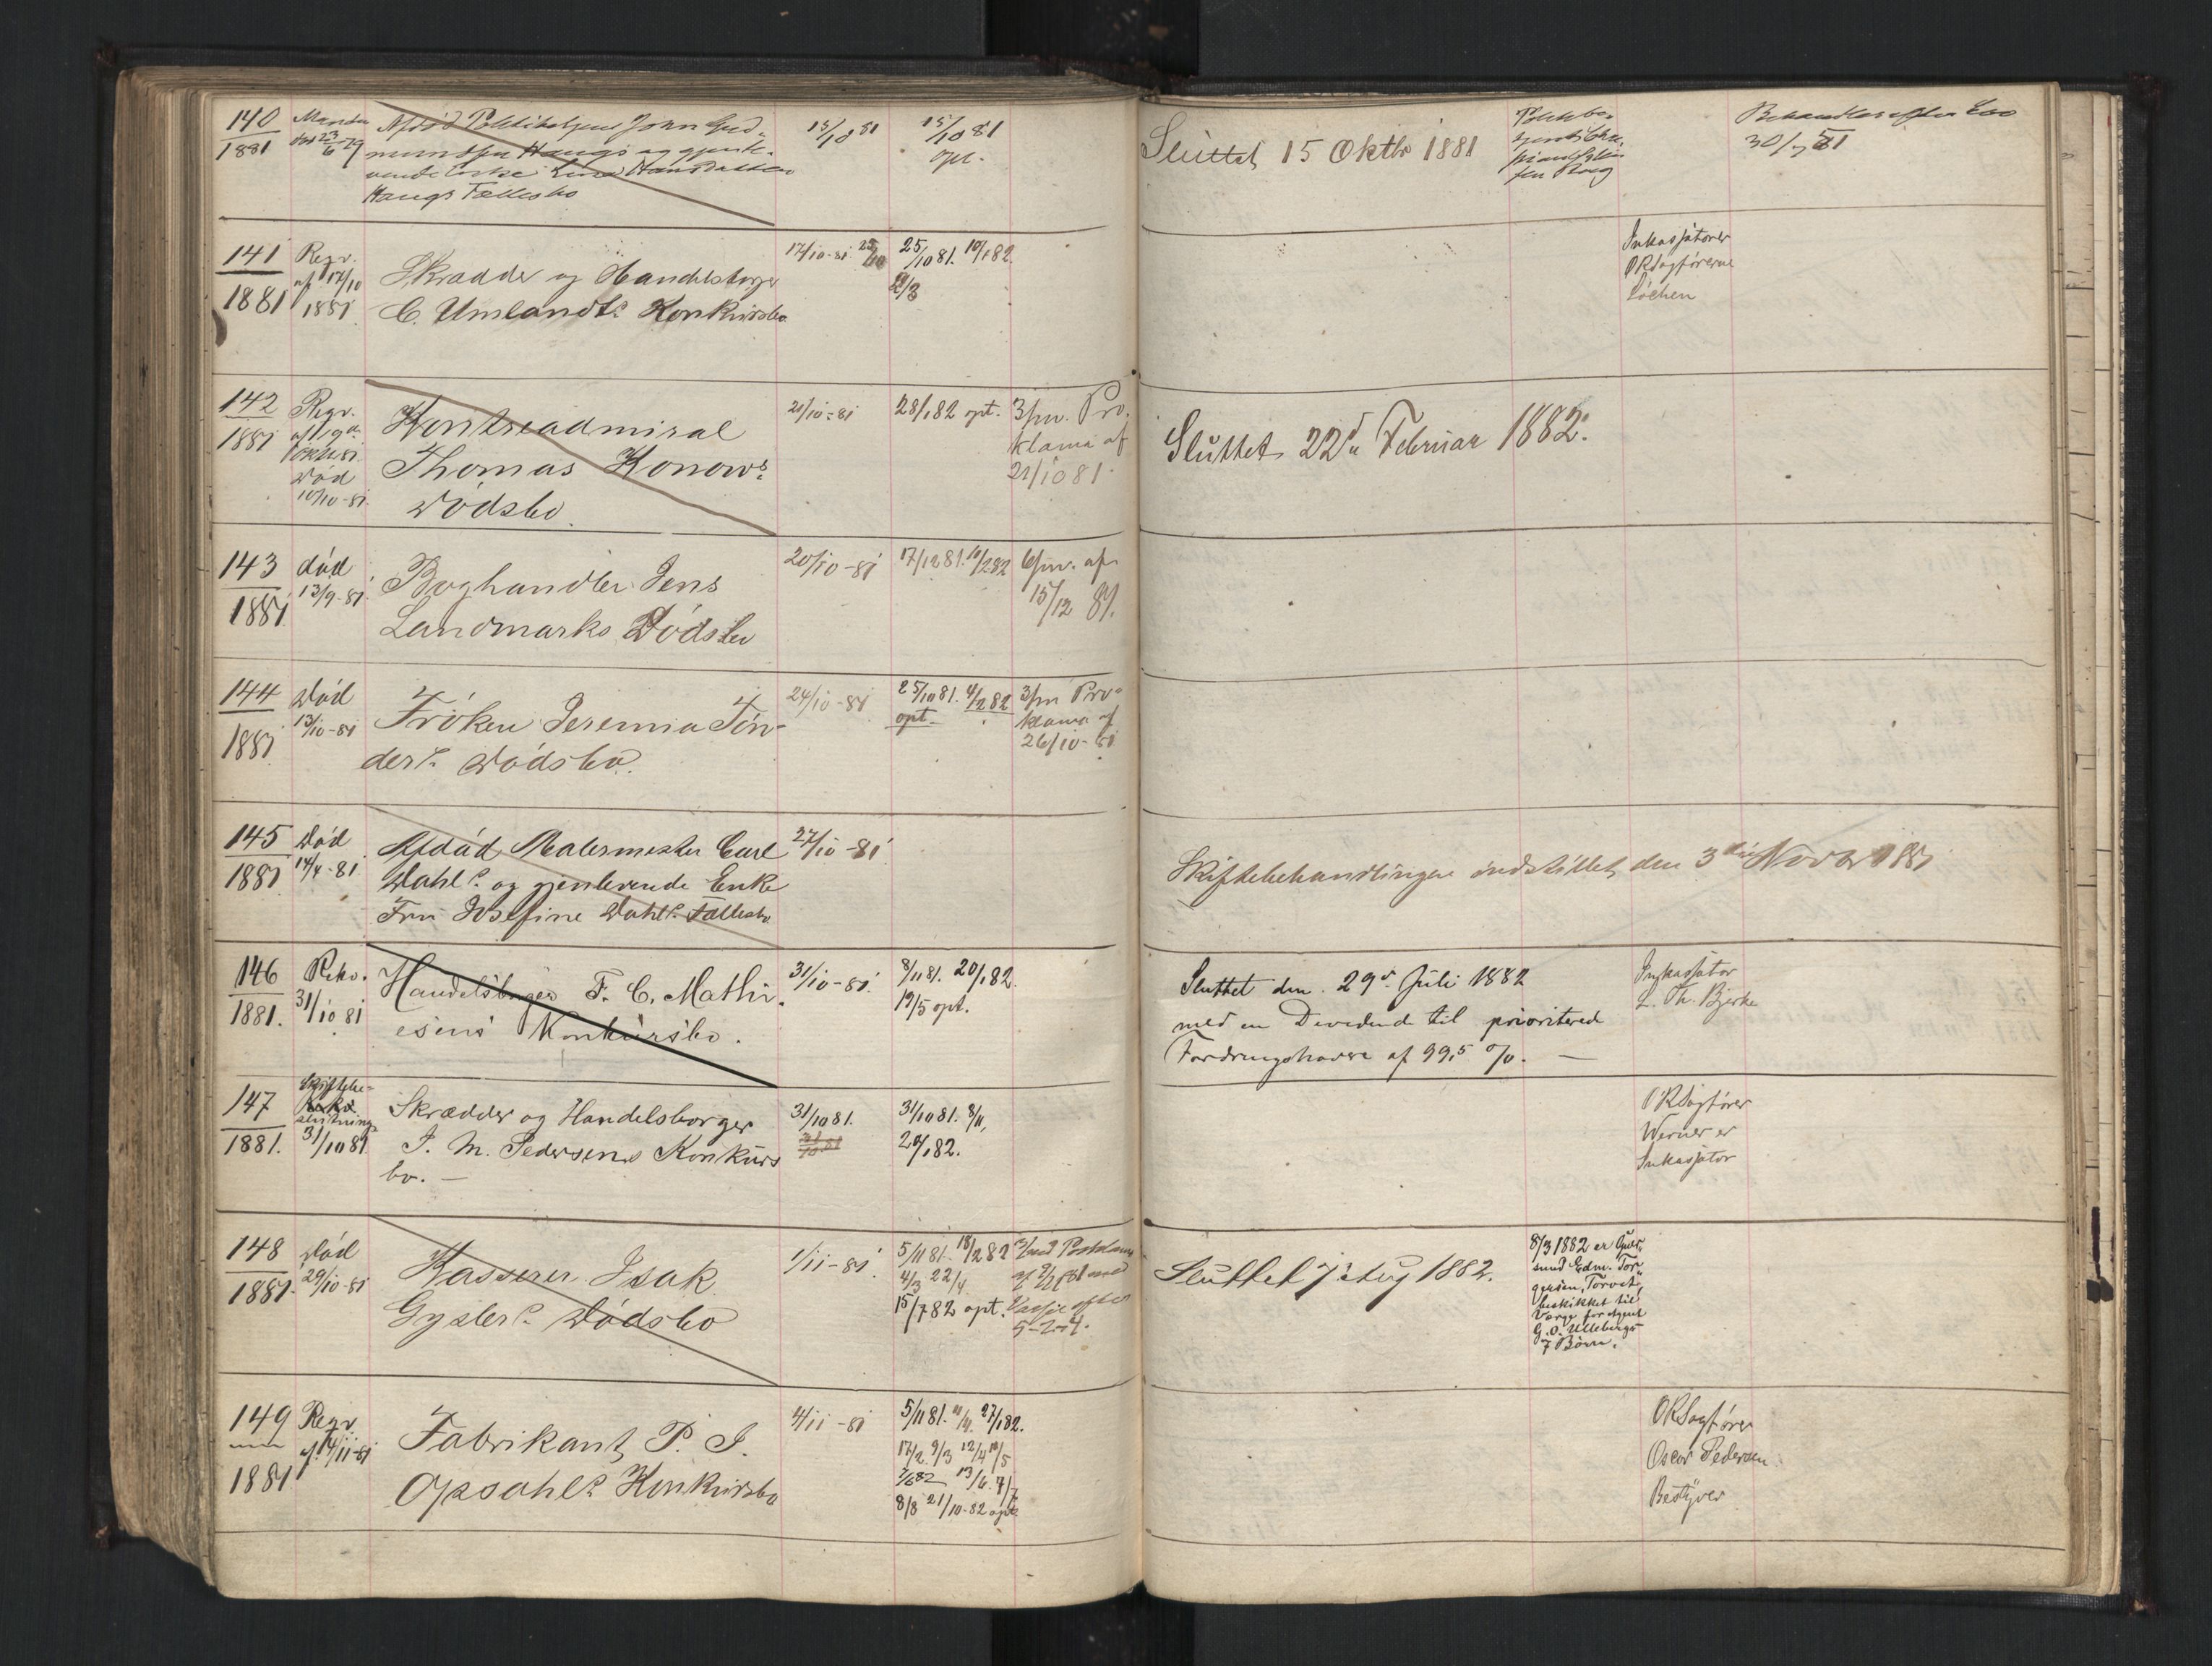 140
1881
Afdød Politibetjent John Gud-
mundsen Haugs og gjenle-
vende Enke
Haugs Fællesbo
15/10 81
15/10 81
opt.
Sluttet 15 Oktbr 1881
Behandles efter Lov
30/7 51
141
1881
Regv.
af 17/10
1881
Skrædder og Handelsborger
C. Umlandts Konkursbo
17/10-81 25/10
25/10 81. 10/1 82.
2/3
Inkassatorer
ORSagførerne
Løchen
142
1881
Regv.
af 19de
Oktb 81.
Død
10/10-81.
Kontreadmiral
Thomas Konows
Dødsbo.
21/10-81
28/1 82 opt.
3/m. Pro-
klama af
21/10 81.
Sluttet 22d Februar 1882.
143
1881
død
13/9-81.
Boghandler Jens
Landmarks Dødsbo
20/10-81
17/12 81. 10/2 82
6/m. af
15/12 81.
144
1881
Død
13/10-81
Frøken Jeremia Tøn-
ders Dødsbo.
24/10-81
25/10 81. 4/2 82
opt.
3/m Pro-
klama af
26/10-81
145
1881
Død
14/4-81
Afdød Malermester Carl
Dahls og gjenlevende Enke
Fru Josefine Dahls Fællesbo
27/10-81
Skiftebehandlingen indstillet den 3die Novbr 1881
146
1881.
Rekv.
31/10 81
Handelsborger F. C. Mathi-
esens Konkursbo.
31/10-81.
8/11 81. 20/1 82.
19/5 opt.
Sluttet den 29d Juli 1882
med en Dividende til prioriterede
Fordringshavere af 99,5 %. —
Inkassator
L. Th. Bjerke
147
1881.
Skiftebe-
slutning
31/10 81
Skrædder og Handelsborger
J. M. Pedersens Konkurs
bo. —
31/10 81.
31/10 81. 8/11,
20/1 82.
ORSagfører
Werner er
Inkassator
148
1881.
Død
29/10-81
Kasserer Isak
Gyslers Dødsbo
1/11-81
5/11 81. 18/2 82
4/3 22/4
15/7 82 opt.
5-2-4.
Sluttet 7de Aug 1882.
8/3 1882 er Guld-
smed Edm. Tor-
gersen, Torvet,
beskikket til
Værge for Agent
G. O. Ullebergs
7 Børn.
149
1881
Regv.
af 4/11-81
Fabrikant P. J.
Opsahls Konkursbo
4/11-81
5/11 81. 27/1 82.
17/2 9/3 12/4 10/5
13/6 7/7
8/8 21/10-82 opt.
ORSagfører
Oscar Pedersen
Bestyrer